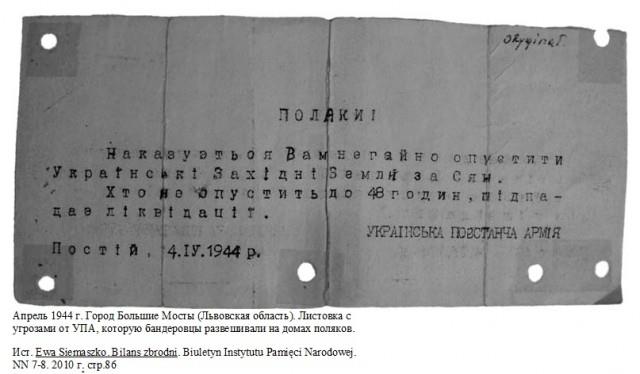 oryginał.
ПОЛЯКИ!
Наказуэться Вам негайно опустити
Українські Західні Землі за Сян.
Хто не опустить до 48 годин, підпа-
дає ліквідації.
УКРАЇНСЬКА ПОВСТАНЧА АРМІЯ
Постій, 4.IV.1944 р.
Апрель 1944 г. Город Большие Мосты (Львовская область). Листовка с
угрозами от УПА, которую бандеровцы развешивали на домах поляков.
Ист. Ewa Siemaszko. Bilans zbrodni. Biuletyn Instytutu Pamięci Narodowej.
NN 7-8. 2010 г, стр.86